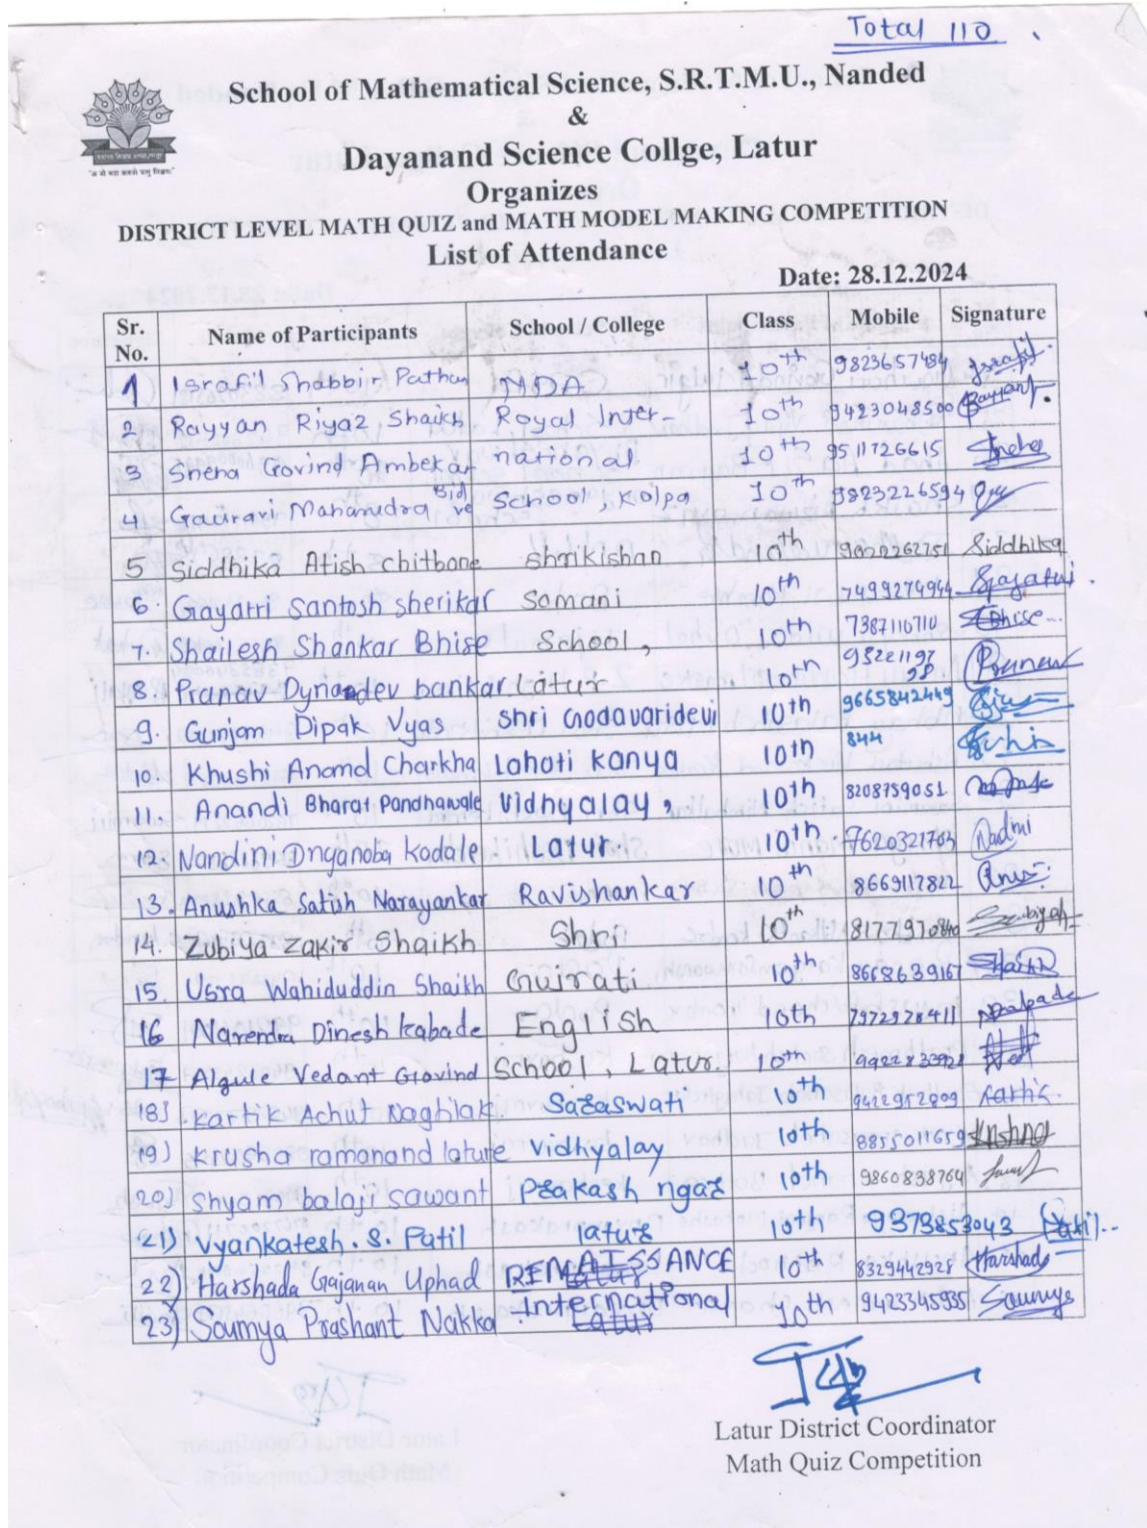 Total 110
School of Mathematical Science, S.R.T.M.U., Nanded
&
Dayanand Science Collge, Latur
Organizes
DISTRICT LEVEL MATH QUIZ and MATH MODEL MAKING COMPETITION
List of Attendance
Date: 28.12.2024
Sr. No. Name of Participants School / College Class Mobile Signature
1 Israfil Shabbir Pathan 10th 9823657484 Israfil
2. Rayyan Riyaz Shaikh Royal Inter- 10th 9423048500 Rayyan
3 Sneha Govind Ambekar national 10th 9511726615 Sneha
4. Gaurari Maharudra Bidve School, Kolpa 10th 9823226594
5 Siddhika Atish Chitbone Shrikishan 10th Siddhika
6. Gayatri Santosh Sherikar Somani 10th 7499274944 Gayatri
7. Shailesh Shankar Bhise School, 10th 7387110710 Bhise
8. Pranav Dynandev bankar Latur 10th Pranav
9. Gunjan Dipak Vyas Shri Godavaridevi 10th 9665842449
10. Khushi Anand Charkha Lahoti Kanya 10th 844
11. Anandi Bharat Pandhawale Vidhyalay, 10th 8208759051
12. Nandini Dnyanoba Kodale Latur 10th 7620321703
13. Anushka Satish Narayankar Ravishankar 10th 8669117822
14. Zubiya Zakir Shaikh Shri 10th
15. Usra Wahiduddin Shaikh Gujrati 10th 8668639167 Shaikh
16 Narendra Dinesh Kabade English 10th
17 Algule Vedant Govind School, Latur. 10th
18) Kartik Achut Naghilak Sazaswati 10th 9422952009 Kartik
19) Krusha ramanand lature Vidhyalay 10th 8855011659 Krishna
20) Shyam balaji sawant Pzakash ngaz 10th 9860838764
21) Vyankatesh. S. Patil latuz 10th 9373853043
22) Harshada Gajanan Uphad RENAISSANCE 10th 8329442928 Harshada
23) Soumya Prashant Nakka International Latur 10th 9423345935 Soumya
Latur District Coordinator
Math Quiz Competition